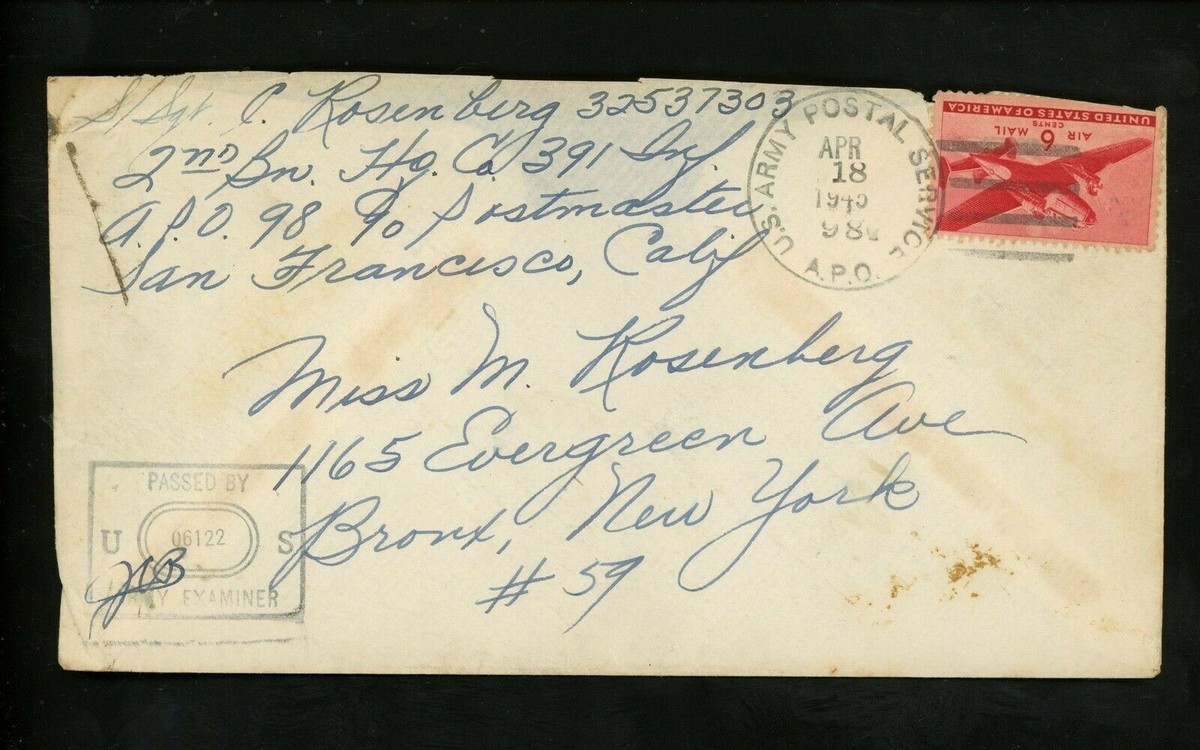 S/Sgt. C. Rosenberg 32537303
2nd Bn. Hq. Co. 391 Inf.
A.P.O. 98 c/o Postmaster
San Francisco, Calif
U.S. ARMY POSTAL SERVICE
APR
18
1945
98
A.P.O.
UNITED STATES OF AMERICA
6 CENTS
AIR MAIL
Miss M. Rosenberg
1165 Evergreen Ave
Bronx, New York
#59
PASSED BY
U 06122 S
ARMY EXAMINER